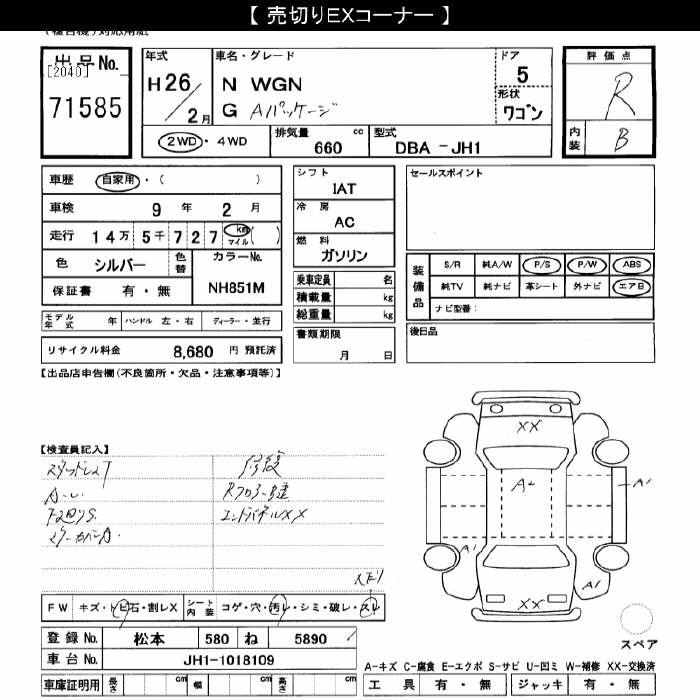 【 売切りEXコーナー 】
出品No.
[2040]
71585
年式
H26/2月
車名・グレード
N WGN
G Aパッケージ
ドア
5
形状
ワゴン
評価点
R
内装
B
2WD・4WD
排気量 660 cc
型式 DBA-JH1
車歴 自家用・( )
車検 9年 2月
走行 14万 5千 727 km マイル ( )
色 シルバー 色替
カラーNo.
NH851M
保証書 有・無
モデル年式 年 ハンドル 左・右 ディーラー・並行
リサイクル料金 8,680 円 預託済
シフト
IAT
冷房
AC
燃料
ガソリン
乗車定員 名
積載量 kg
総重量 kg
書類期限
月 日
セールスポイント
装備品
S/R 純A/W P/S P/W ABS
純TV 純ナビ 革シート 外ナビ エアB
ナビ型番:
後日品
【出品店申告欄(不良箇所・欠品・注意事項等)】
【検査員記入】
スタッドレス7
修復
エンドパネルXX
XX
A
A'
A'
A1
XX
FW キズ・トビ石・割レX
シート内装 コゲ・穴・汚レ・シミ・破レ・スレ
登録No. 松本 580 ね 5890
車台No. JH1-1018109
車庫証明用 長さ cm 幅 cm 高さ cm
スペア
A-キズ C-腐食 E-エクボ S-サビ U-凹ミ W-補修 XX-交換済
工具 有・無 ジャッキ 有・無